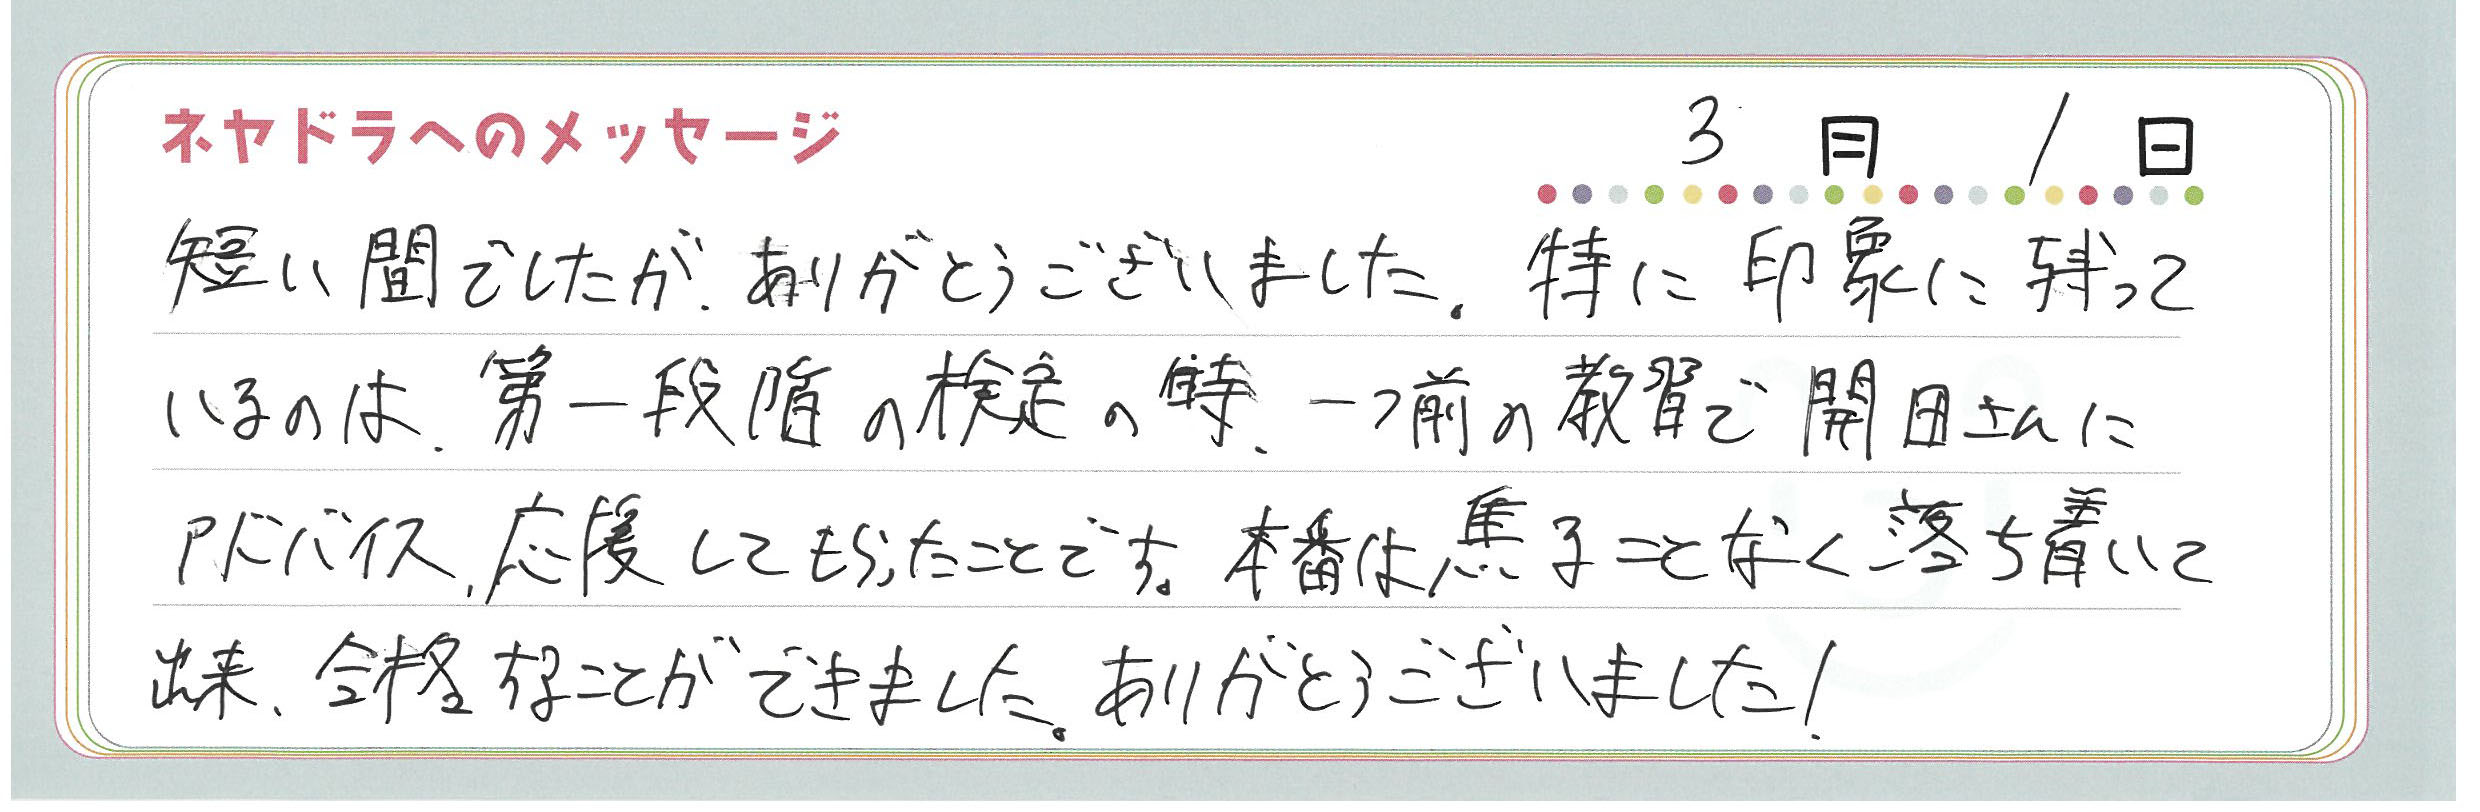 ネヤドラへのメッセージ
3月1日
短い間でしたが、ありがとうございました。特に印象に残って
いるのは、第一段階の検定の時、一つ前の教習で開田さんに
アドバイス、応援してもらったことです。本番は焦ることなく落ち着いて
出来、合格することができました。ありがとうございました!